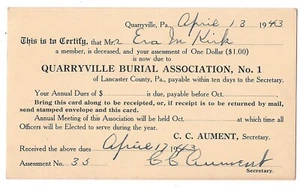 Quarryville, Pa., April 13 1943
This is to Certify, that Mrs Eva M Kirk
a member, is deceased, and your assessment of One Dollar ($1.00)
is now due to
QUARRYVILLE BURIAL ASSOCIATION, No. 1
of Lancaster County, Pa., payable within ten days to the Secretary.
Your Annual Dues of $ is due, payable before Oct.
Bring this card along to be receipted, or, if receipt is to be returned by mail,
send stamped envelope and this card.
Annual Meeting of this Association will be held Oct. at which time all
Officers will be Elected to serve during the year.
C. C. AUMENT, Secretary.
Received the above dues April 17 1943
Assessment No. 35 CC Aument
Secretary.